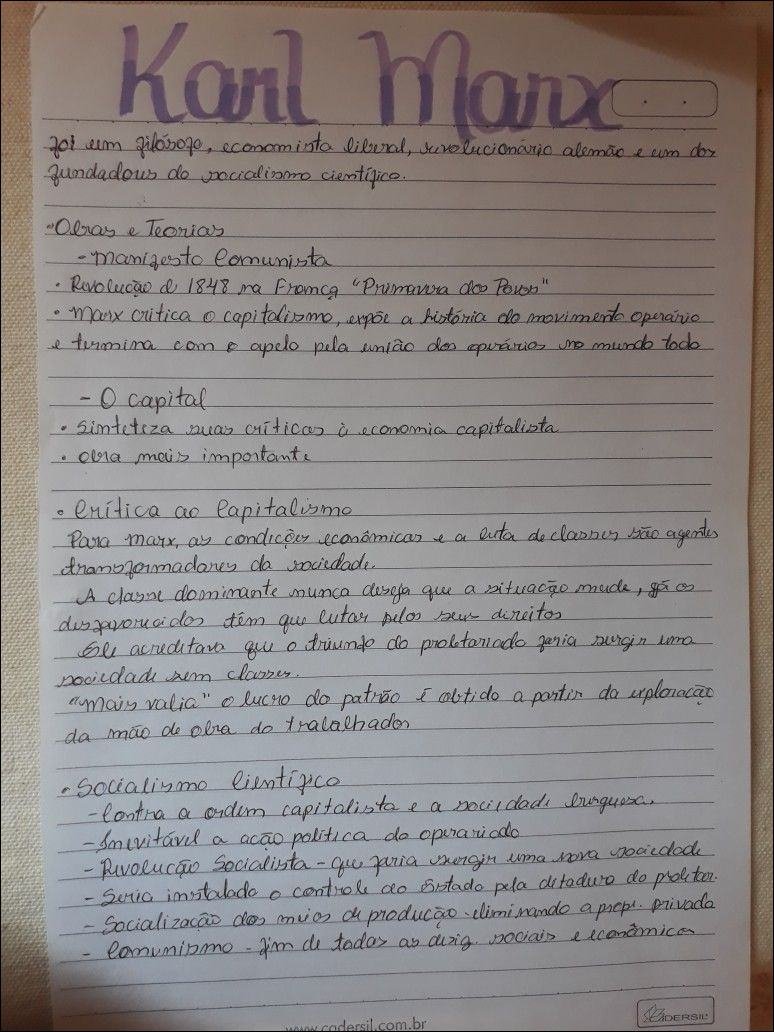 Karl Marx
foi um filósofo, economista liberal, revolucionário alemão e um dos
fundadores do socialismo científico.
"Obras e Teorias
- Manifesto Comunista
• Revolução de 1848 na França "Primavera dos Povos"
• Marx critica o capitalismo, expõe a história do movimento operário
e termina com o apelo pela união dos operários no mundo todo
- O capital
• Sinteteza suas críticas à economia capitalista
• obra mais importante
• Crítica ao Capitalismo
Para Marx, as condições econômicas e a luta de classes são agentes
transformadores da sociedade.
A classe dominante nunca deseja que a situação mude, já os
desfavorecidos têm que lutar pelos seus direitos
Ele acreditava que o triunfo do proletariado faria surgir uma
sociedade sem classes.
"Mais valia" o lucro do patrão é obtido a partir da exploração
da mão de obra do trabalhador
• Socialismo Científico
- Contra a ordem capitalista e a sociedade burguesa.
- Inevitável a ação política do operariado
- Revolução Socialista - que faria surgir uma nova sociedade
- Seria instalado o controle do Estado pela ditadura do proletar.
- Socialização dos meios de produção - eliminando a propr. privada
- Comunismo - fim de todas as desig. sociais e econômicas
www.cadersil.com.br
CADERSIL